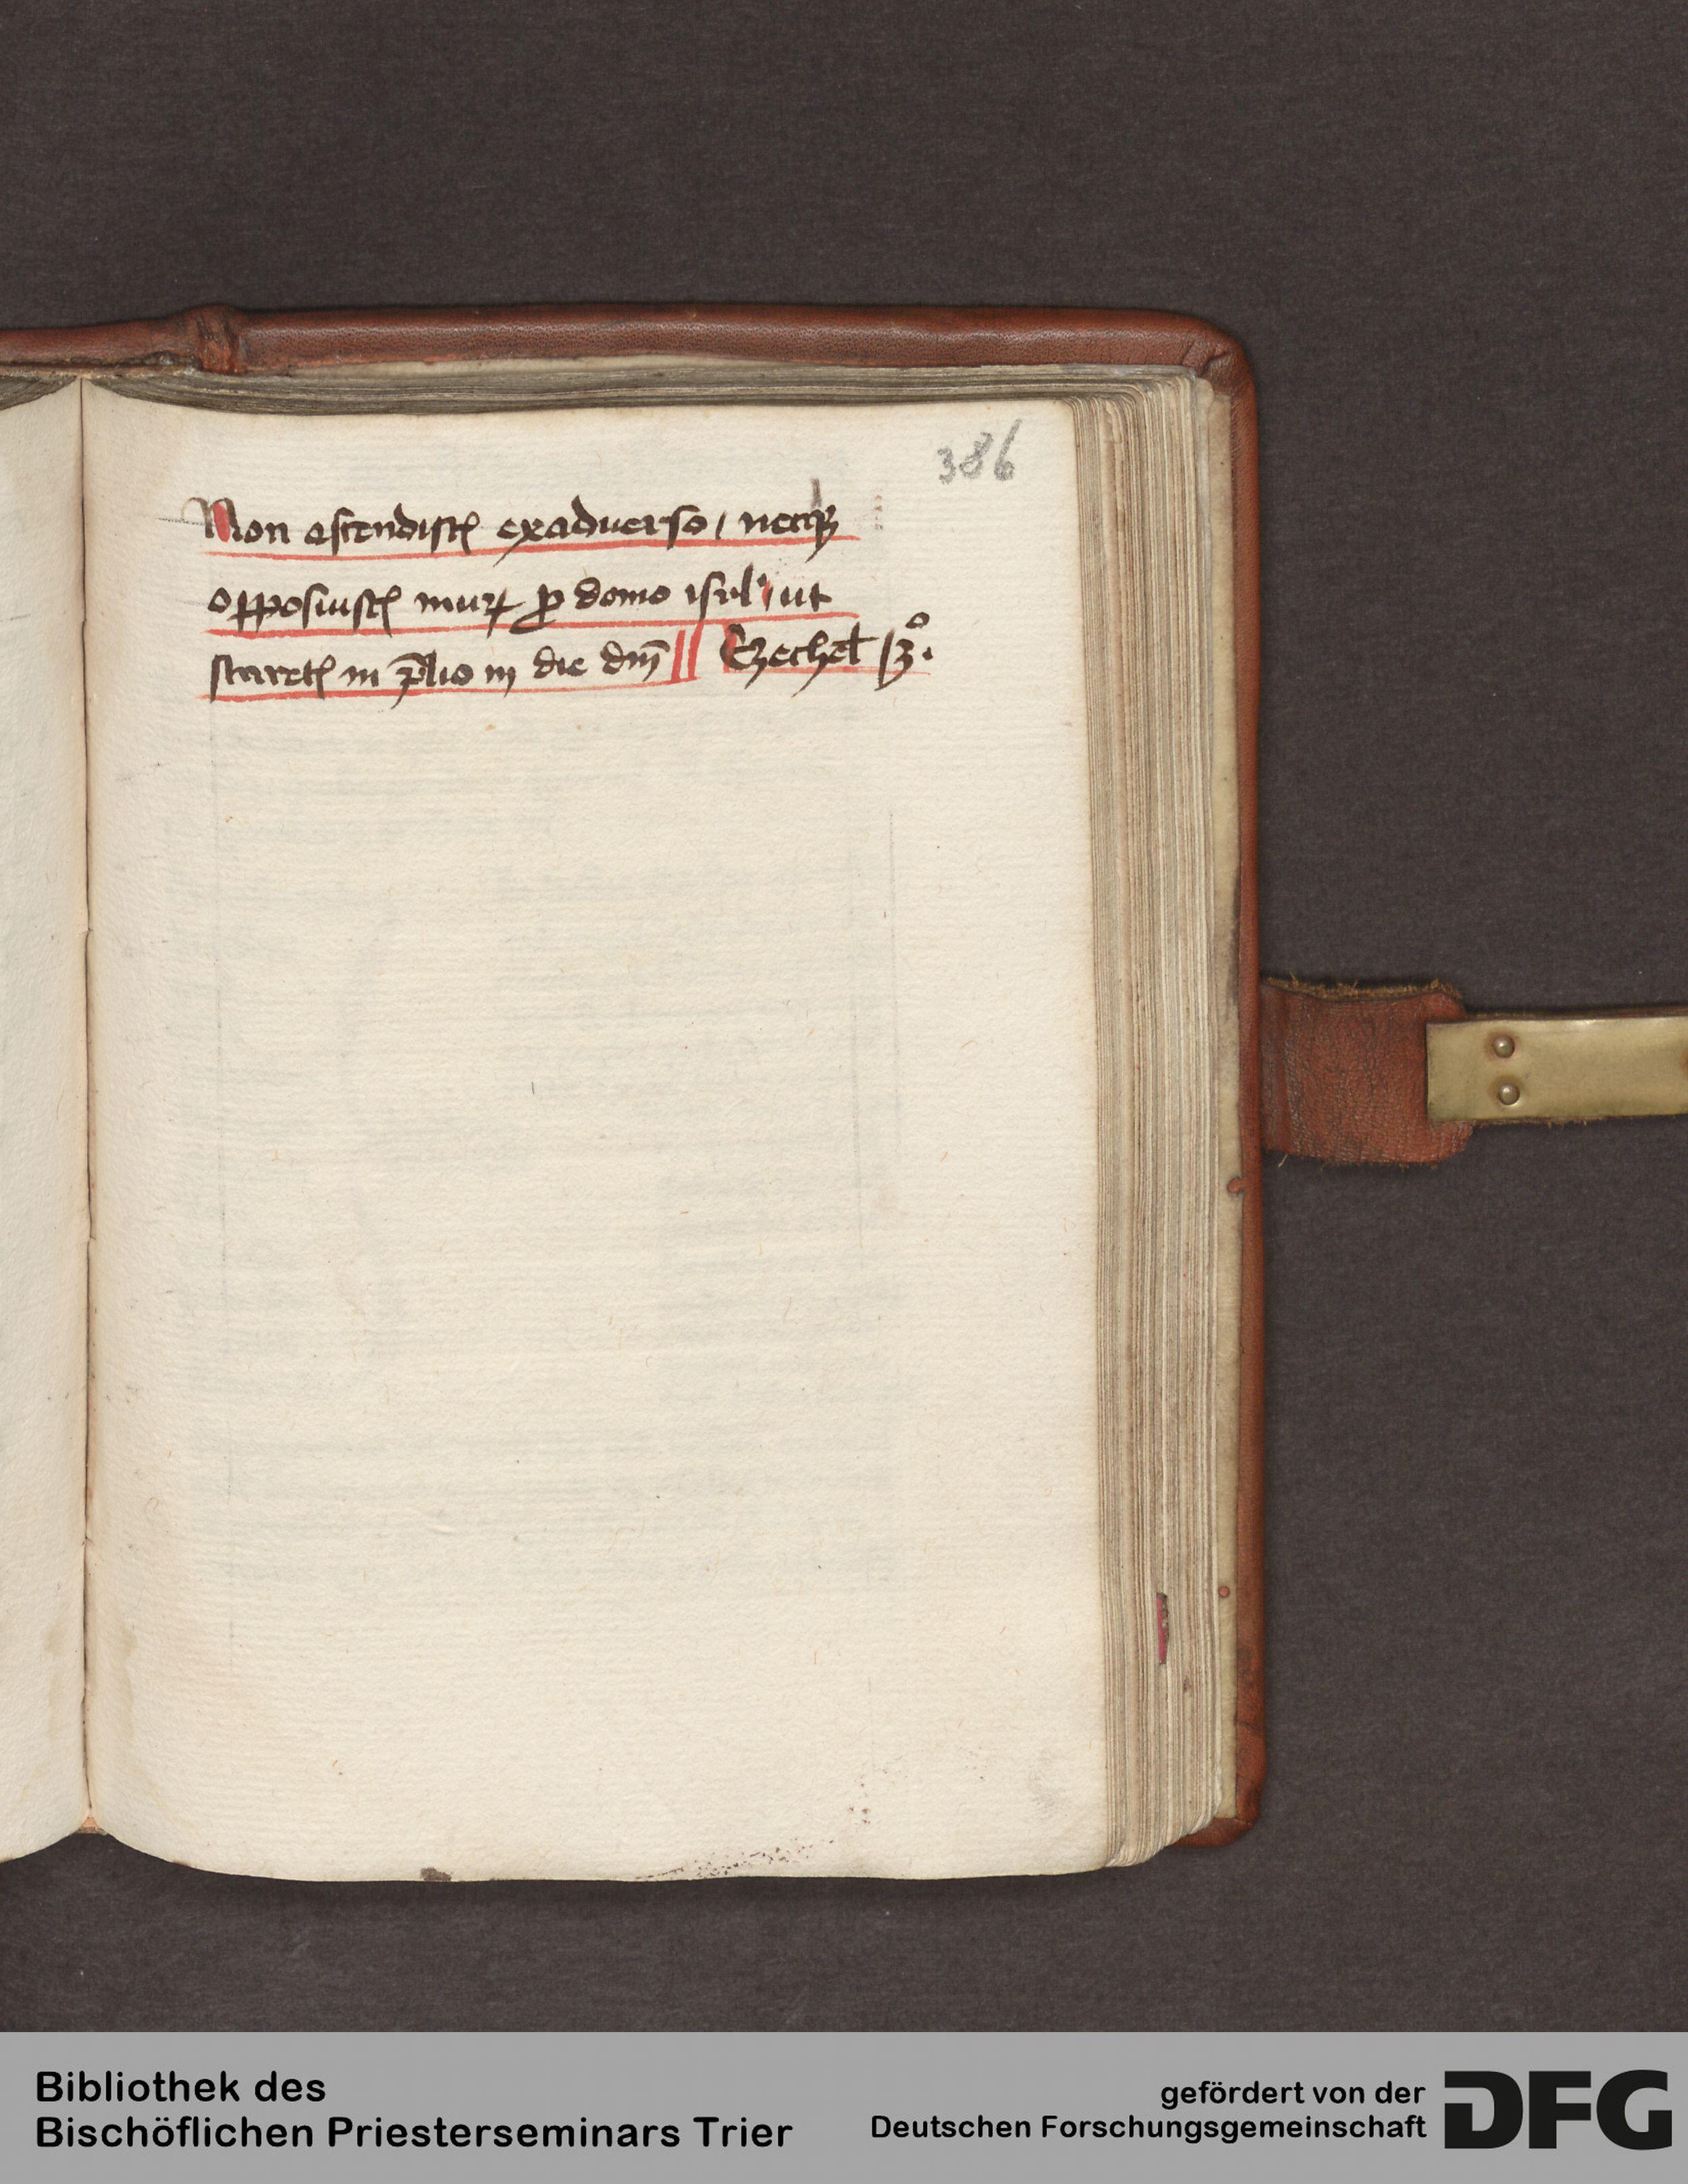 386
Non ascendistꝭ exaduerso / necqꝫ
opposuistꝭ murꝝ ꝓ domo isrl' / ut
staretꝭ in p̄lio in die dnī || Ezechel 13º.
Bibliothek des
Bischöflichen Priesterseminars Trier
gefördert von der
Deutschen Forschungsgemeinschaft
DFG